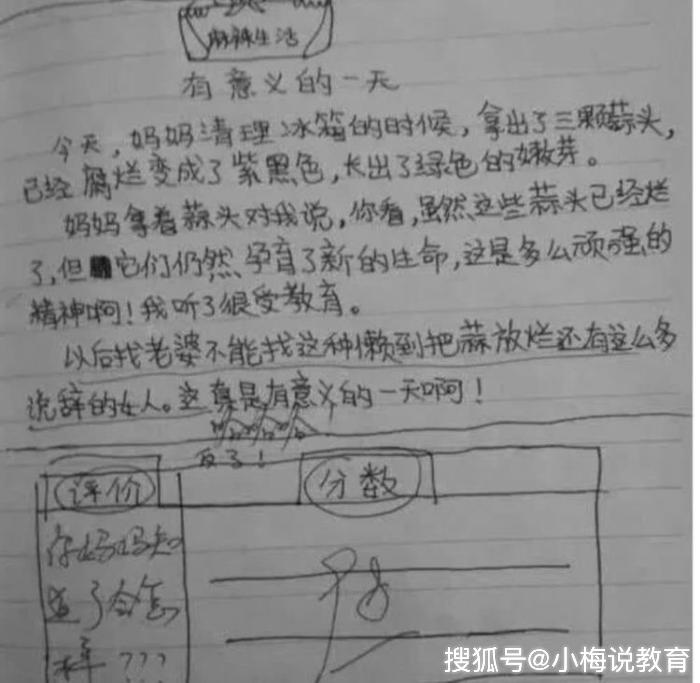 麻辣生活
有意义的一天
今天，妈妈清理冰箱的时候，拿出了三颗蒜头，
已经腐烂变成了紫黑色，长出了绿色的嫩芽。
妈妈拿着蒜头对我说，你看，虽然这些蒜头已经烂
了，但它们仍然孕育了新的生命，这是多么顽强的
精神啊！我听了很受教育。
以后找老婆不能找这种懒到把蒜放烂还有这么多
说辞的女人。这真是有意义的一天啊！
反了！
评价
分数
你妈妈知
道了会怎
样？？？
98
搜狐号@小梅说教育